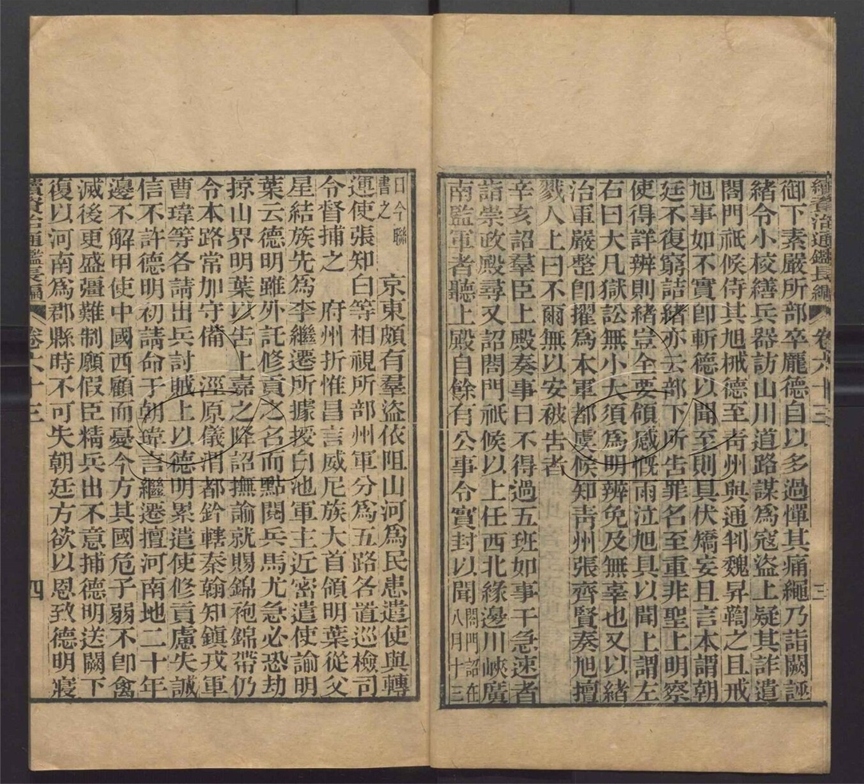 續資治通鑑長編 卷六十三 三
御下素嚴所部卒龐德自以多過憚其痛繩乃詣闕誣
緒令小校繕兵器訪山川道路謀爲寇盜上疑其詐遣
閤門祗候侍其旭械德至靑州與通判魏昇鞫之且戒
旭事如不實卽斬德以聞至則具伏矯妄且言本謂朝
廷不復窮詰緒亦云部下所告罪名至重非聖上明察
使得詳辨則緒豈全要領感慨雨泣旭具以聞上謂左
右曰大凡獄訟無小大須爲明辨免及無辜也又以緒
治軍嚴整卽擢爲本軍都虞候知靑州張齊賢奏旭擅
戮人上曰不爾無以安被告者
辛亥詔羣臣上殿奏事曰不得過五班如事干急速者
詣崇政殿尋又詔閤門祗候以上任西北緣邊川峽廣
南監軍者聽上殿自餘有公事令實封以聞閤門詔在八月十三
日今聯書之 京東頗有羣盜依阻山河爲民患遣使與轉
運使張知白等相視所部州軍分爲五路各置巡檢司
令督捕之 府州折惟昌言威尼族大首領明葉從父
星結族先爲李繼遷所據授白池軍主近密遣使諭明
葉云德明雖外託修貢之名而點閱兵馬尤急必恐劫
掠山界明葉以吿上嘉之降詔撫諭就賜錦袍錦帶仍
令本路常加守備 涇原儀渭都鈐轄秦翰知鎭戎軍
曹瑋等各請出兵討賊上以德明累遣使修貢慮失誠
信不許德明初請命于朝瑋言繼遷擅河南地二十年
邊不解甲使中國西顧而憂今方其國危子弱不卽禽
滅後更盛彊難制願假臣精兵出不意捕德明送闕下
復以河南爲郡縣時不可失朝廷方欲以恩致德明寢
續資治通鑑長編 卷六十三 四